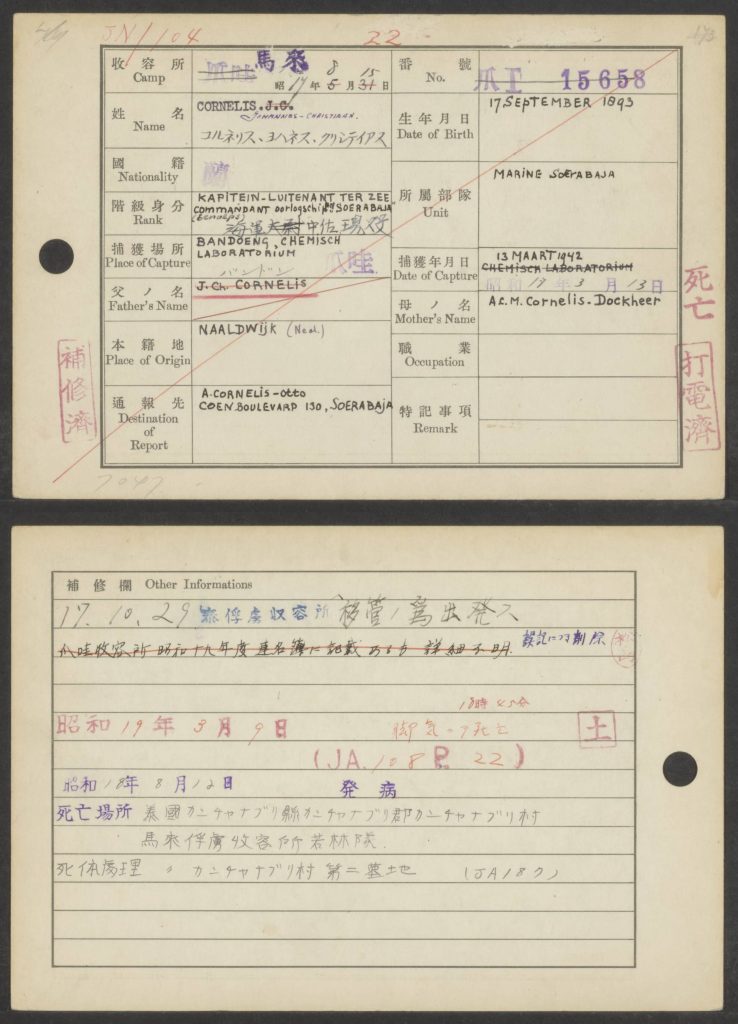 JN/1104
22
收容所 馬来 8 15
Camp 昭17年5月31日
番號 爪I 15658
No.
姓名 CORNELIS. J.C.
Name JOHANNES-CHRISTIAAN.
コルネリス、ヨハネス、クリシテイアス
生年月日 17 SEPTEMBER 1893
Date of Birth
國籍 蘭
Nationality
階級身分 KAPITEIN-LUITENANT TER ZEE
Rank COMMANDANT oorlogschip SOERABAJA
海軍大尉中佐現役
所屬部隊 MARINE SOERABAJA
Unit
捕獲場所 BANDOENG, CHEMISCH
Place of Capture LABORATORIUM
バンドン 爪哇
捕獲年月日 13 MAART 1942
Date of Capture CHEMISCH LABORATORIUM
昭和17年3月13日
父ノ名 J. Ch. CORNELIS
Father's Name
母ノ名 A.C.M. Cornelis-Dockheer
Mother's Name
本籍地 NAALDWIJK (Ned.)
Place of Origin
職業
Occupation
通報先 A. CORNELIS-OTTO
Destination COEN BOULEVARD 130, SOERABAJA
of
Report
特記事項
Remark
補修濟
死亡
打電濟
7047
補修欄 Other Informations
17.10.29 泰俘虜収容所ヘ移管ノ為出発ス
爪哇收容所昭和十九年度連名簿ニ記載アルモ詳細不明 誤記ニツキ削除
18時45分
昭和19年3月9日 脚気ニテ死亡 土
(JA.108 P. 22)
昭和18年8月12日 発病
死亡場所 泰國カンチャナブリ縣カンチャナブリ郡カンチャナブリ村
馬来俘虜收容所若林隊
死体處理 〃 カンチャナブリ村第二墓地 (JA187)